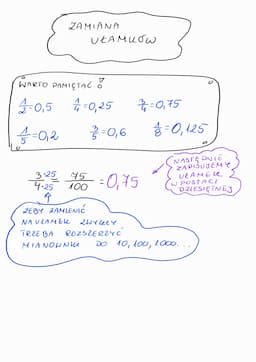 ZAMIANA
UŁAMKÓW
WARTO PAMIĘTAĆ!
1/2=0,5 1/4=0,25 3/4=0,75
1/5=0,2 3/5=0,6 1/8=0,125
3·25/4·25 = 75/100 = 0,75
NASTĘPNIE
ZAPISUJEMY
UŁAMEK
W POSTACI
DZIESIĘTNEJ
ŻEBY ZAMIENIĆ
NA UŁAMEK ZWYKŁY
TRZEBA ROZSZERZYĆ
MIANOWNIK DO 10, 100, 1000...